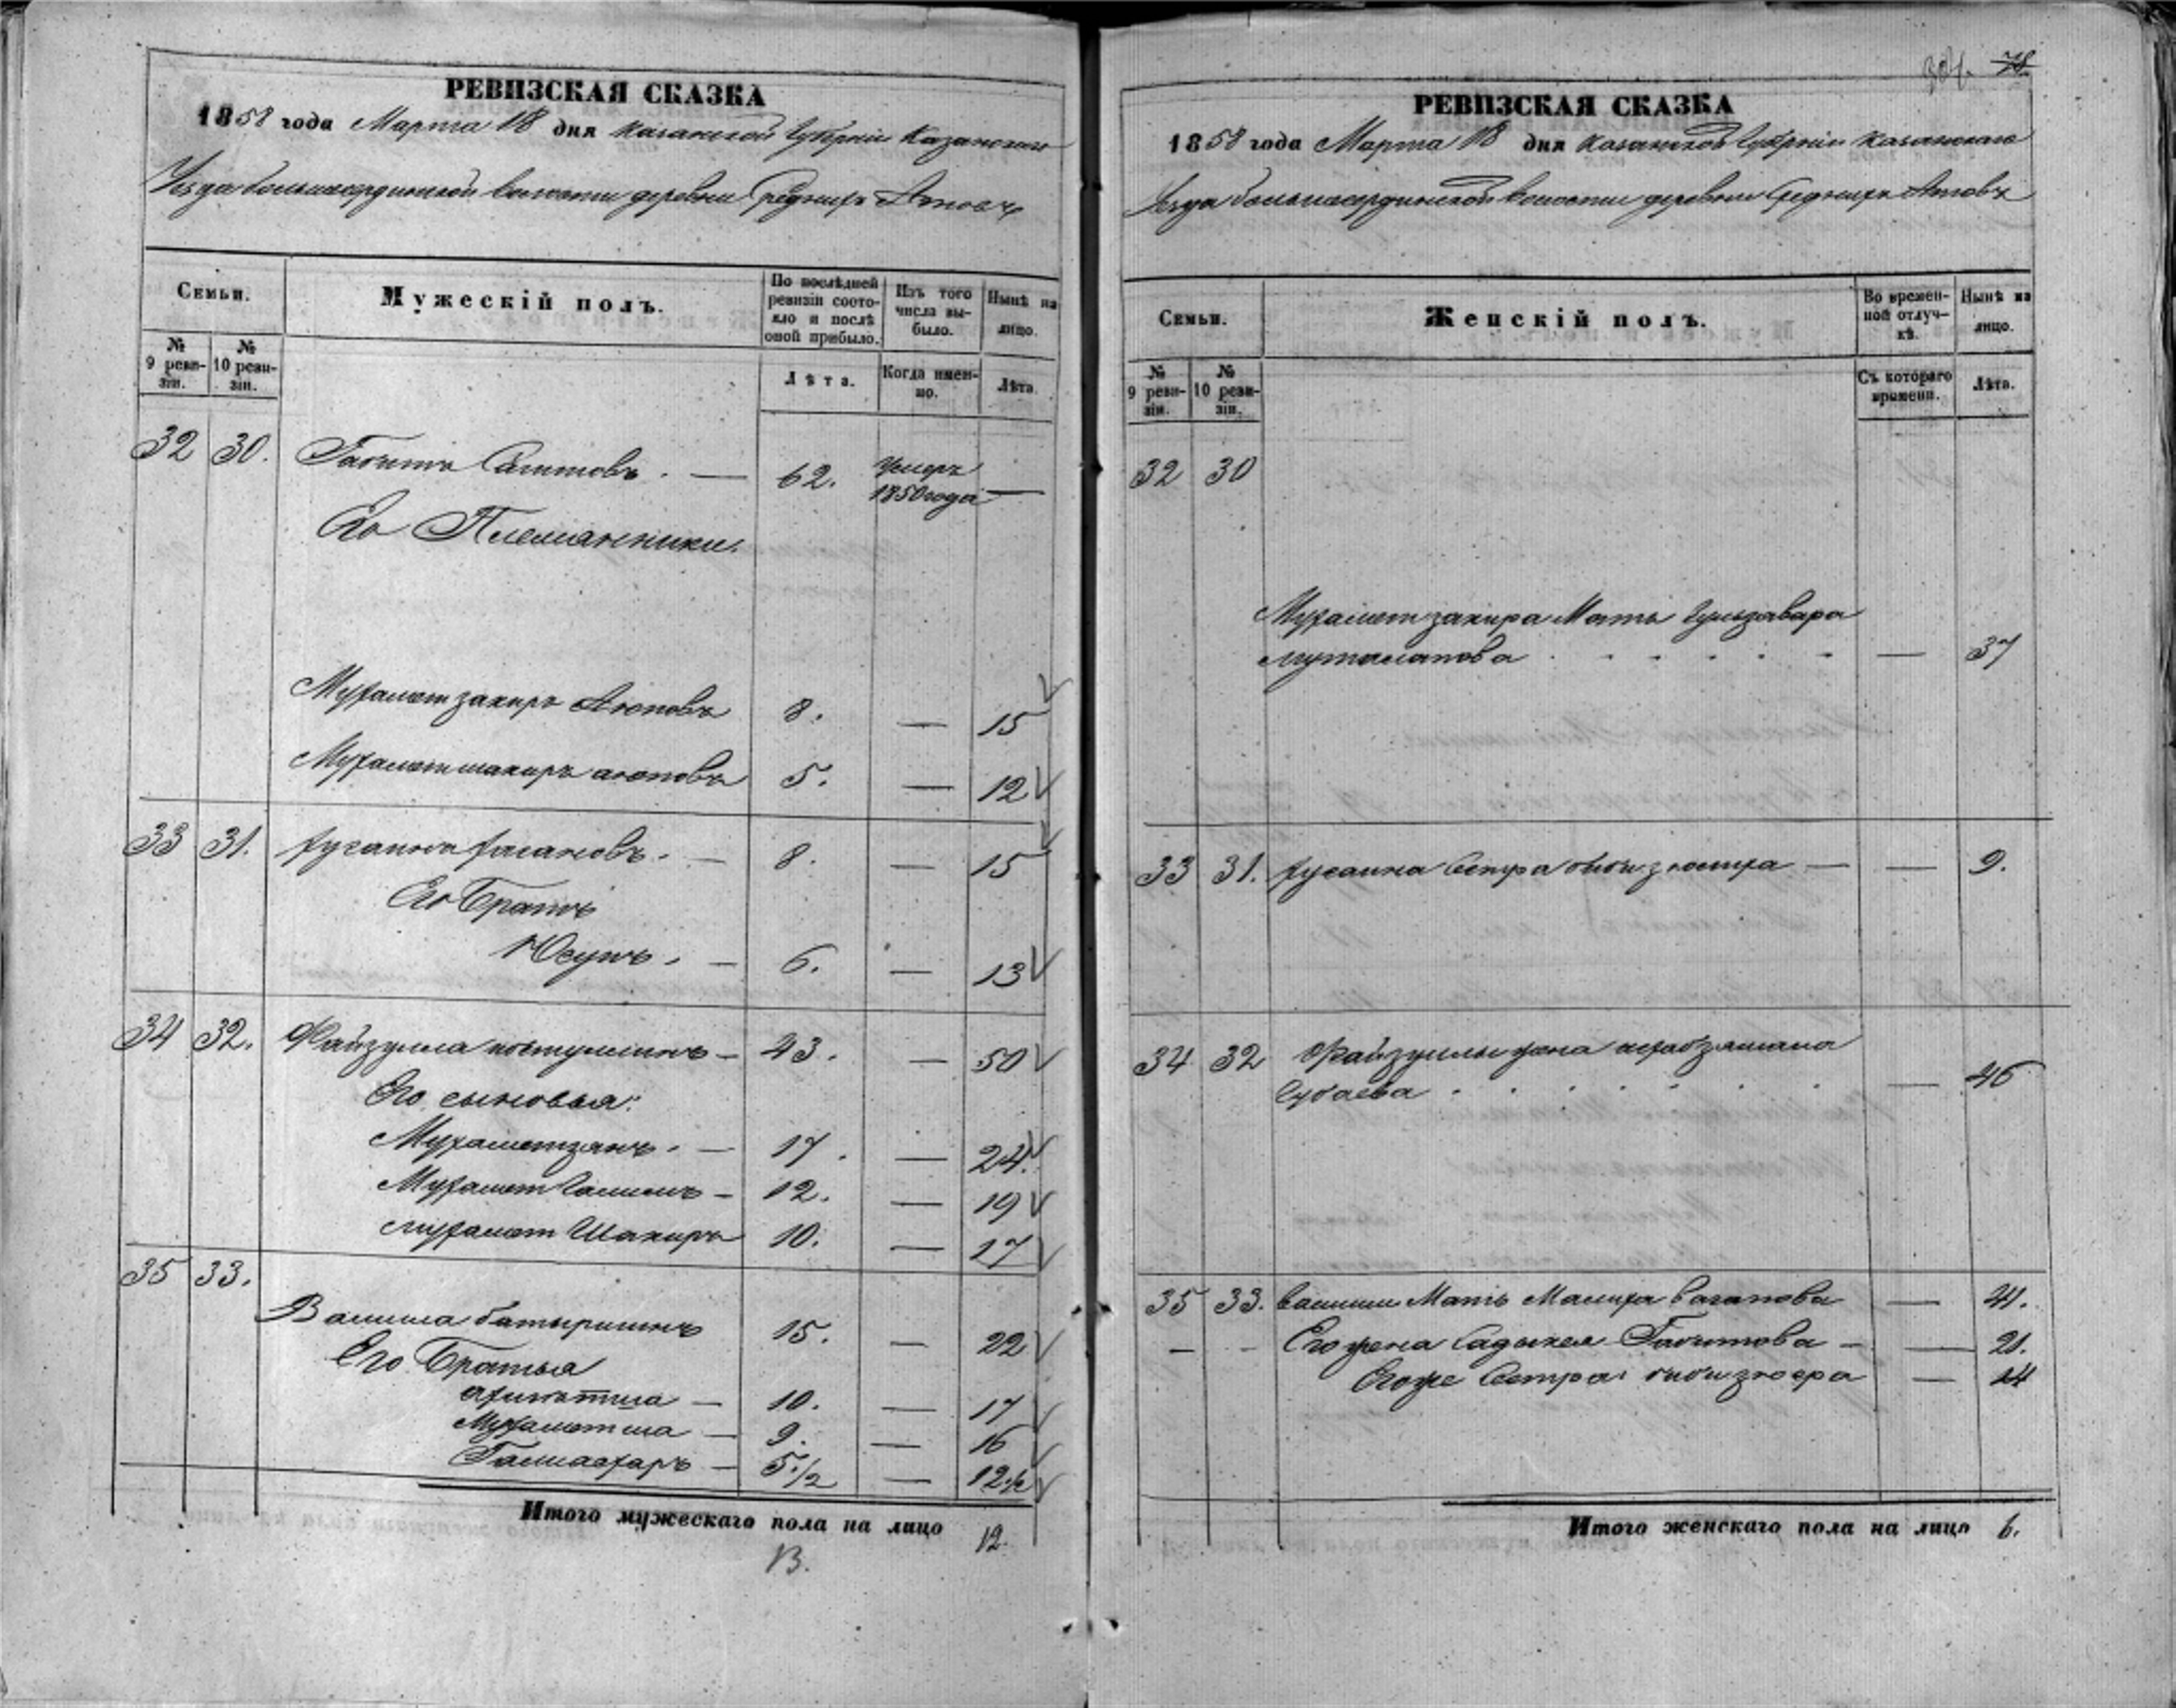 РЕВИЗСКАЯ СКАЗКА
1858 года Марта 18 дня Казанской Губерніи Казанскаго
Уезда большесординской волости деревни Среднихъ Атовъ
Семьи.
Мужескій полъ.
По послѣдней ревизіи состояло и послѣ оной прибыло.
Изъ того числа выбыло.
Нынѣ на лицо.
№ 9 ревизіи.
№ 10 ревизіи.
Лѣта.
Когда именно.
Лѣта.
32 30. Габитъ Саитовъ. — 62. Умеръ 1850 года —
Его Племянники.
Мухаметзакиръ Аюповъ 8. — 15
Мухаметшакиръ аюповъ 5. — 12
33 31. хусаинъ хасановъ. — 8. — 15
Его Братъ
Юсупъ. — 6. — 13
34 32. Файзулла — 43. — 50
Его сыновья:
Мухаметзянъ. — 17. — 24.
Мухамет Галимъ — 12. — 19
Мухамет Шакиръ 10. — 17
35 33.
Валиша батыршинъ 15. — 22
Его Братья
— 10. — 17
Мухаметша — 9. — 16
Галиасхаръ — 5 1/2 — 12 1/2
Итого мужескаго пола на лицо 12.
13.
304. 78
РЕВИЗСКАЯ СКАЗКА
1858 года Марта 18 дня Казанской Губерніи Казанскаго
Уезда большесординской волости деревни Среднихъ Атовъ
Семьи.
Женскій полъ.
Во временной отлучкѣ.
Нынѣ на лицо.
№ 9 ревизіи.
№ 10 ревизіи.
Съ котораго времени.
Лѣта.
32 30
Мухаметзакира Мать Гульзавара
муталапова — 37
33 31. хусаина Сестра — — 9.
34 32 Файзуллы жена
Субаева — 46
35 33. валиши Мать Малиха вагапова — 41.
— - Его жена Садыкея Габитова — — 21.
Егоже Сестра: бибизюгра — 14
Итого женскаго пола на лицо 6.